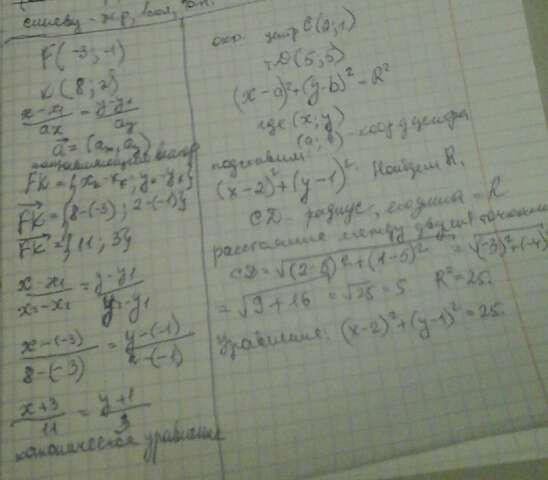 F(-3; -1)
K(8; 2)
x-x₁/aₓ = y-y₁/aᵧ
a⃗ = (aₓ, aᵧ)
направляющий вектор
FK = {11; 3}
FK = {8-(-3); 2-(-1)}
x-x₁/x₂-x₁ = y-y₁/y₂-y₁
x-(-3)/8-(-3) = y-(-1)/2-(-1)
x+3/11 = y+1/3
каноническое уравнение
окр. центр C(2; 1)
т. D(5; 5)
(x-a)²+(y-b)² = R²
где (x; y)
(a; b) - координаты
подставим:
(x-2)²+(y-1)². Найдем R.
CD - радиус, = R
расстояние между двумя точками
CD = √(2-5)²+(1-5)² = √(-3)²+(-4)²
= √9+16 = √25 = 5 R² = 25.
Уравнение: (x-2)²+(y-1)² = 25.